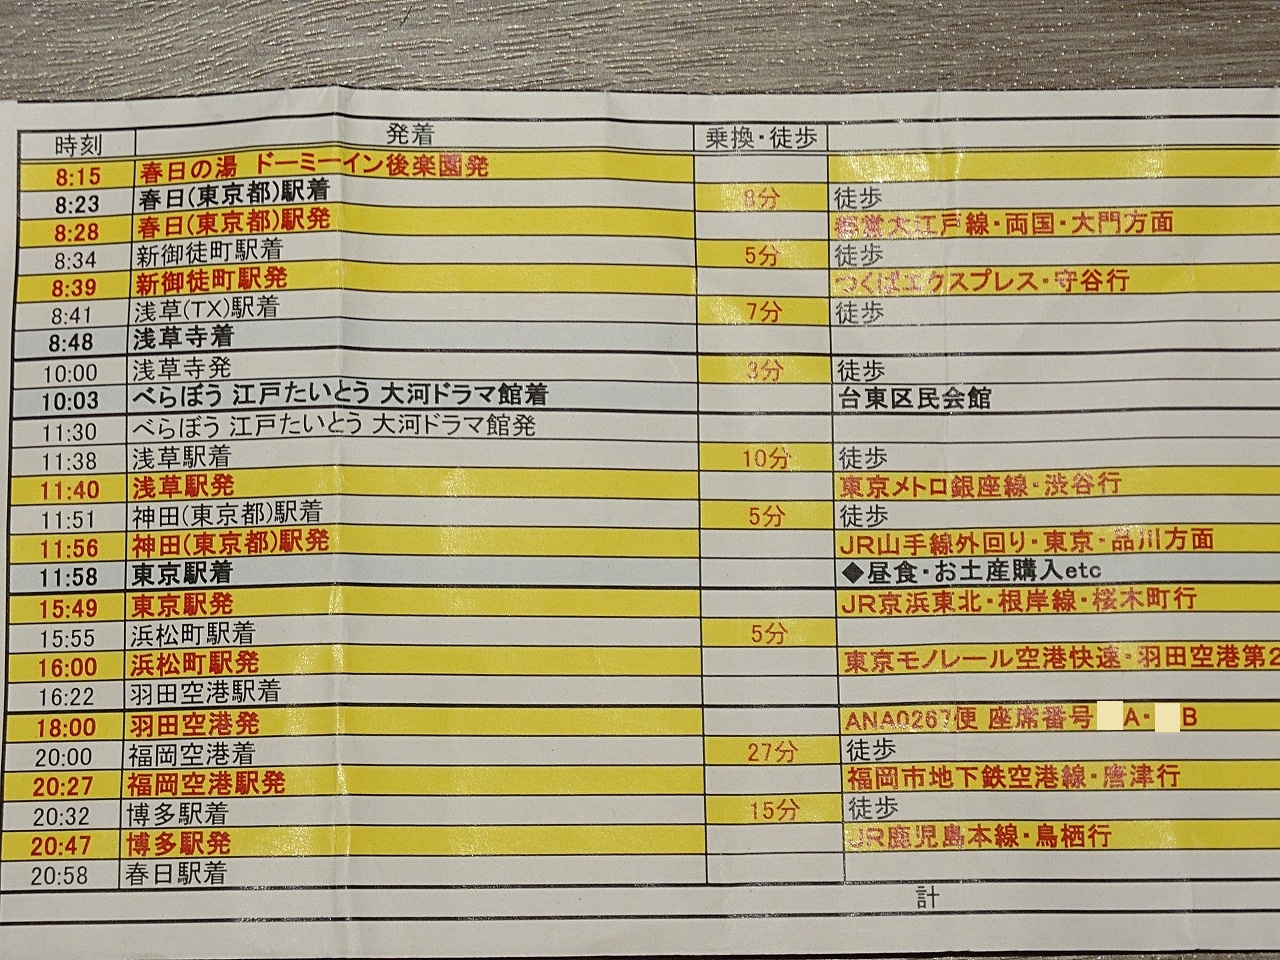 時刻 発着 乗換・徒歩
8:15 春日の湯 ドーミーイン後楽園発
8:23 春日(東京都)駅着 8分 徒歩
8:28 春日(東京都)駅発 都営大江戸線・両国・大門方面
8:34 新御徒町駅着 5分 徒歩
8:39 新御徒町駅発 つくばエクスプレス・守谷行
8:41 浅草(TX)駅着 7分 徒歩
8:48 浅草寺着
10:00 浅草寺発 3分 徒歩
10:03 べらぼう 江戸たいとう 大河ドラマ館着 台東区民会館
11:30 べらぼう 江戸たいとう 大河ドラマ館発
11:38 浅草駅着 10分 徒歩
11:40 浅草駅発 東京メトロ銀座線・渋谷行
11:51 神田(東京都)駅着 5分 徒歩
11:56 神田(東京都)駅発 JR山手線外回り・東京・品川方面
11:58 東京駅着 ◆昼食・お土産購入etc
15:49 東京駅発 JR京浜東北・根岸線・桜木町行
15:55 浜松町駅着 5分
16:00 浜松町駅発 東京モノレール空港快速・羽田空港第2
16:22 羽田空港駅着
18:00 羽田空港発 ANA0267便 座席番号 A・ B
20:00 福岡空港着 27分 徒歩
20:27 福岡空港駅発 福岡市地下鉄空港線・唐津行
20:32 博多駅着 15分 徒歩
20:47 博多駅発 JR鹿児島本線・鳥栖行
20:58 春日駅着
計